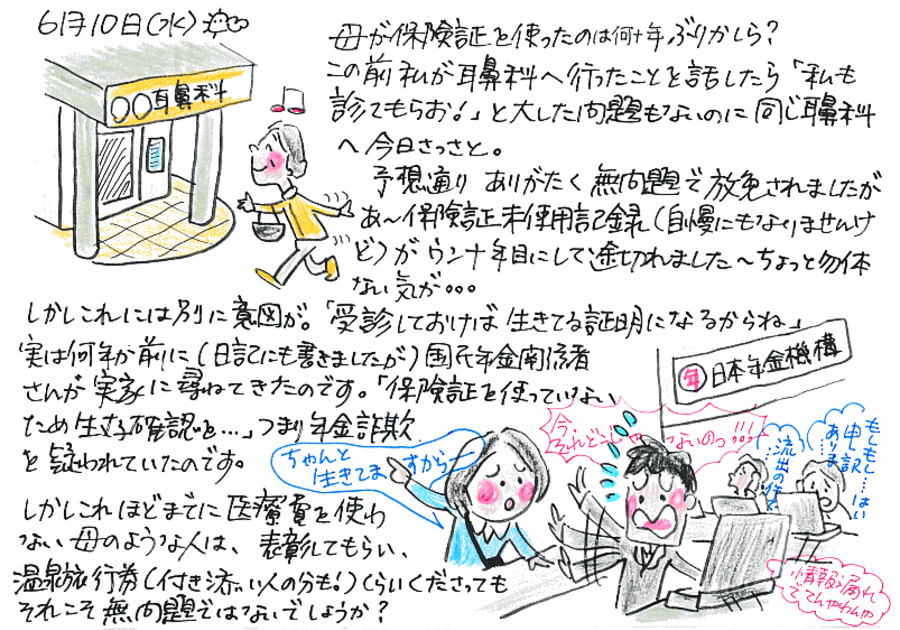 6月10日(水)
〇〇耳鼻科
母が保険証を使ったのは何十年ぶりかしら？
この前私が耳鼻科へ行ったことを話したら「私も
診てもらお！」と大した問題もないのに同じ耳鼻科
へ今日さっさと。
予想通りありがたく無問題で放免されましたが
あ～保険証未使用記録(自慢にもなりませんけ
ど)がウン十年目にして途切れました～ちょっと勿体
ない気が…
しかしこれには別に意図が。「受診しておけば生きてる証明になるからね」
実は何年か前に(日記にも書きましたが)国民年金関係者
さんが実家に尋ねてきたのです。「保険証を使っていない
ため生存確認を…」つまり年金詐欺
を疑われていたのです。
しかしこれほどまでに医療費を使わ
ない母のような人は、表彰してもらい、
温泉旅行券(付き添い人の分も！)くらいくださっても
それこそ無問題ではないでしょうか？
年 日本年金機構
ちゃんと
生きてますから
今、
それどこじゃないのっ!!!
…流出の件
もしもし…はい
申し訳
あり
情報漏れ
でてんやわんや